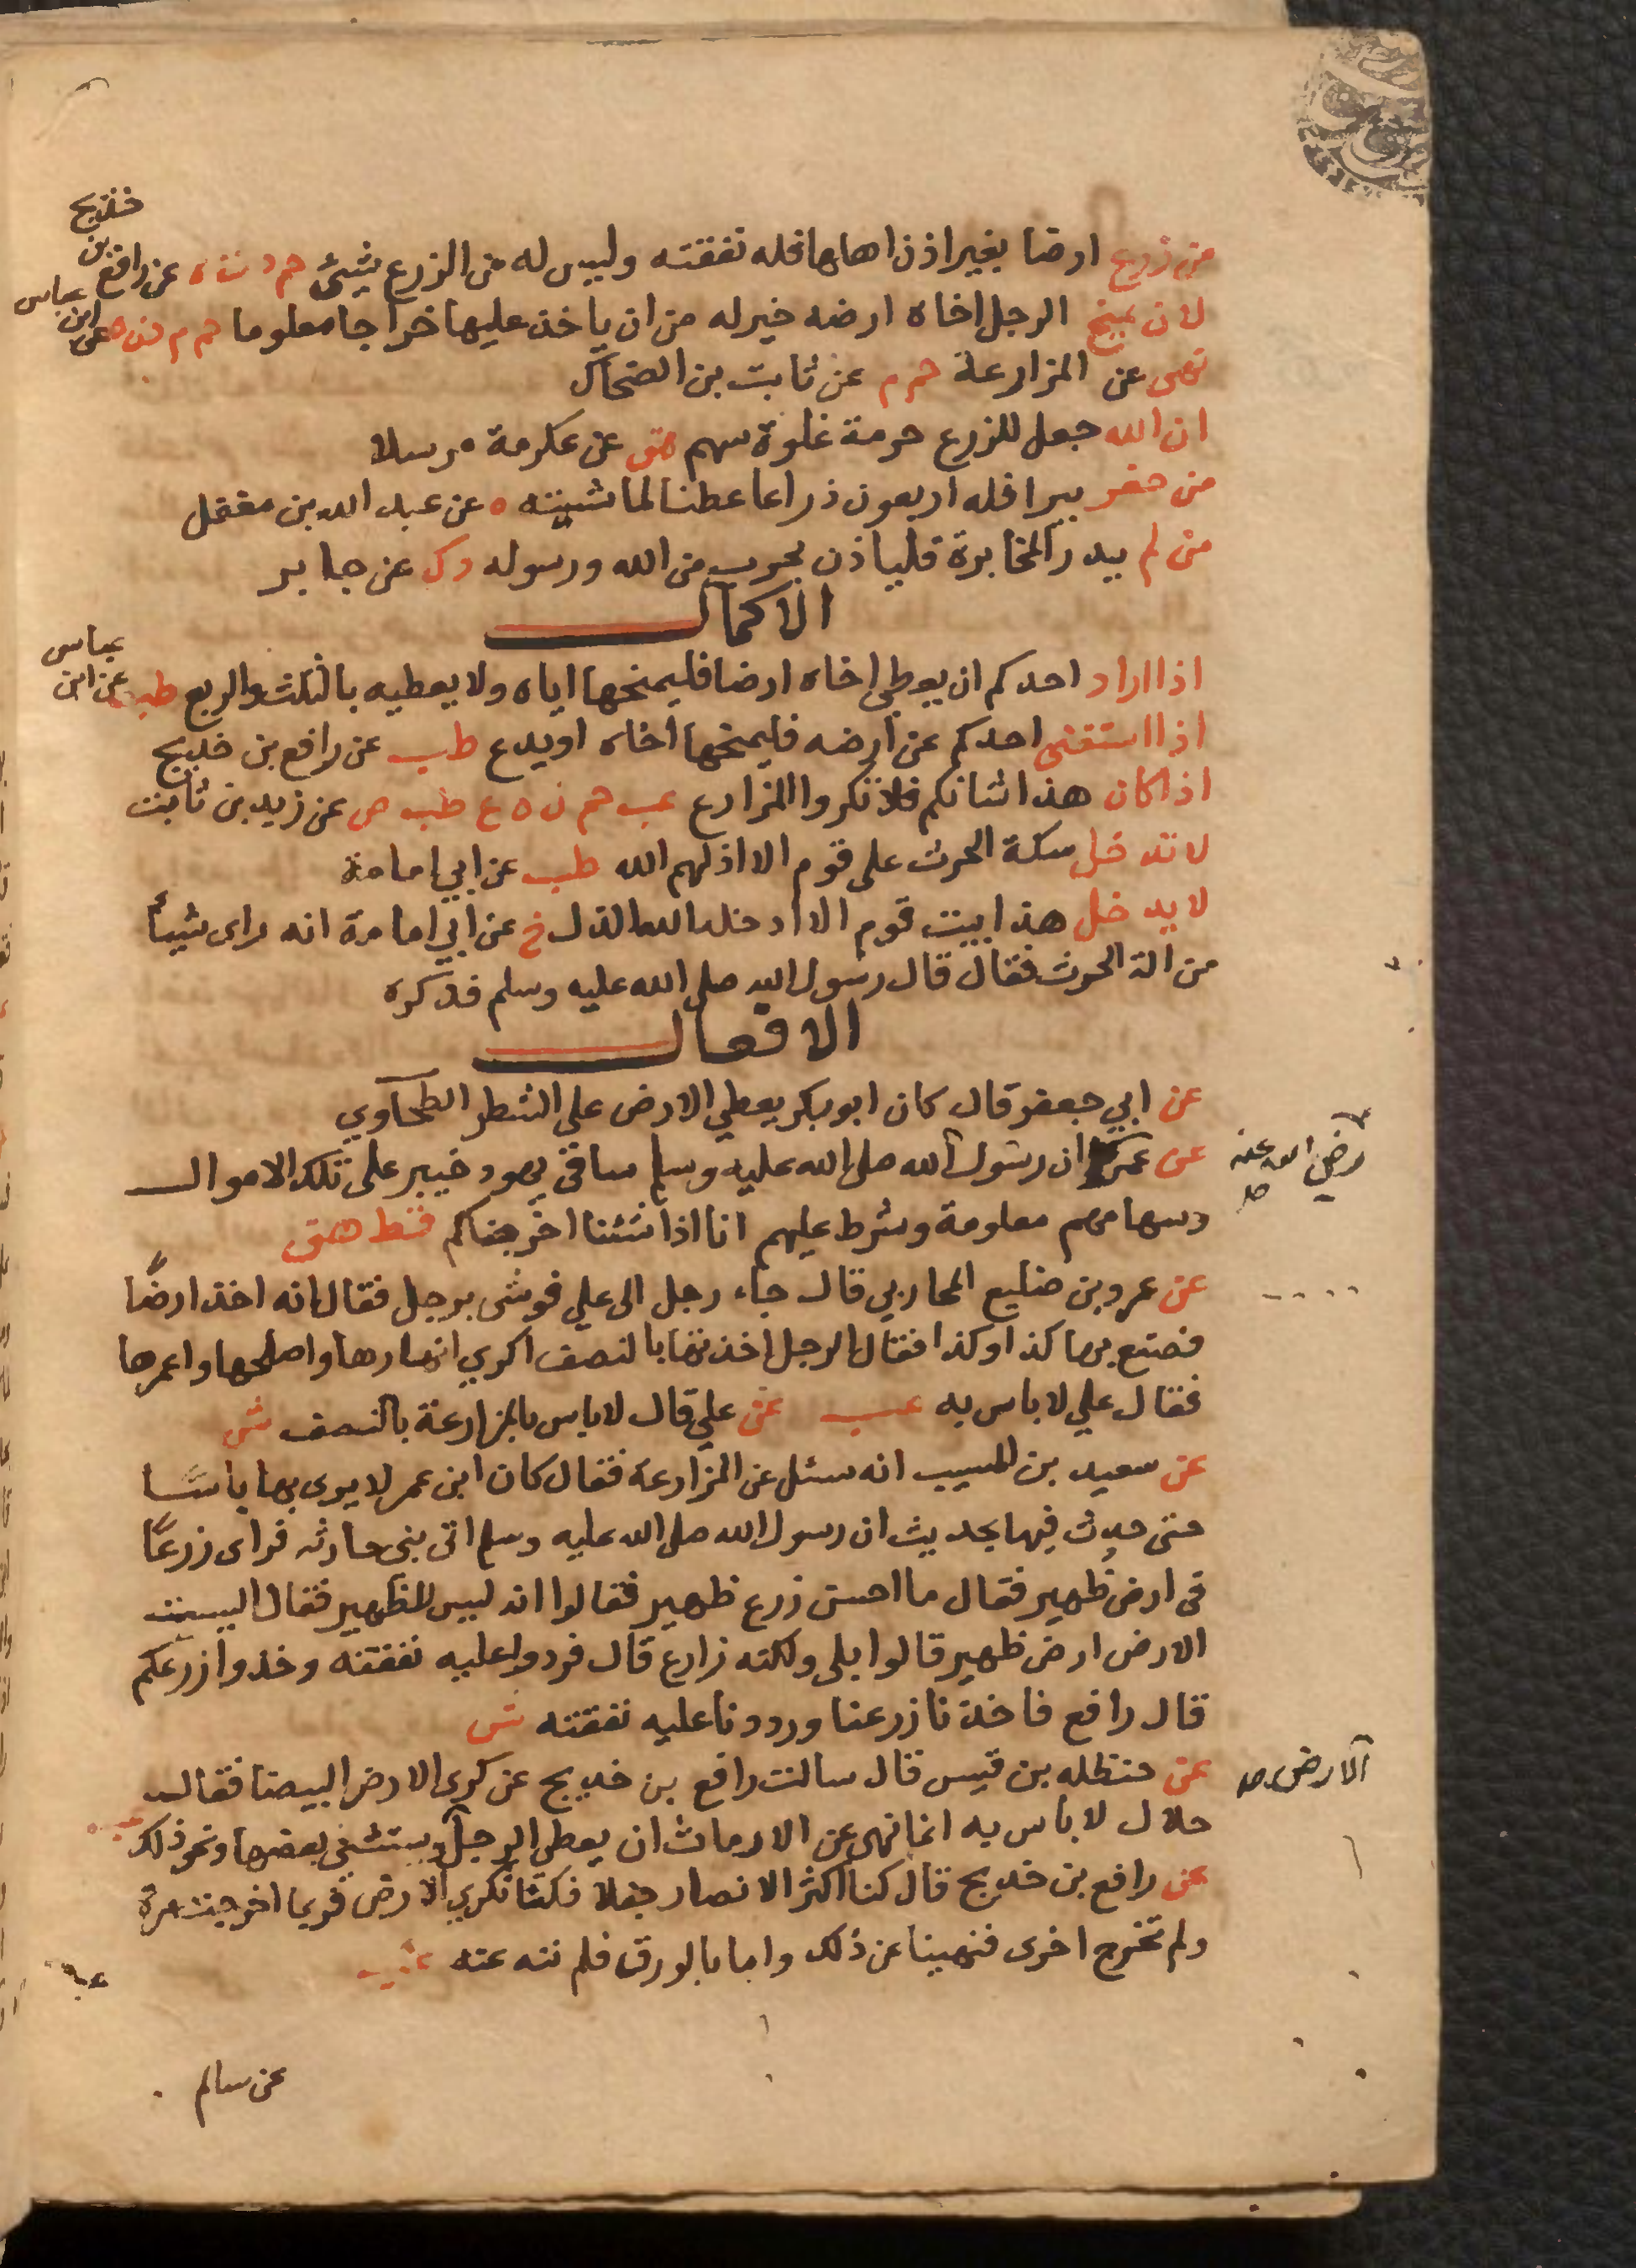 من زرع ارضا بغير اذن اهلها فله نفقته وليس له من الزرع شيئ حم د ت ه عن رافع بن خديج
لان يمنح الرجل اخاه ارضه خير له من ان ياخذ عليها خراجا معلوما حم م د ن ه عن ابن عباس
نهى عن المزارعة حم م عن ثابت بن الضحاك
ان الله جعل للزرع حرمة غلوة سهم هق عن عكرمة مرسلا
من حفر بيرا فله اربعون ذراعا عطنا لماشيته ه عن عبد الله بن مغفل
من لم يدر المخابرة فلياذن بحرب من الله ورسوله د ك عن جابر
الاكمال
اذا اراد احدكم ان يعطي اخاه ارضا فليمنحها اياه ولا يعطيه بالثلث والربع طب عن ابن عباس
اذا استغنى احدكم عن ارضه فليمنحها اخاه او يدع طب عن رافع بن خديج
اذا كان هذا شانكم فلا تكروا المزارع عب حم ن ه ع طب ص عن زيد بن ثابت
لا تدخل سكة الحرث على قوم الا اذلهم الله طب عن ابي امامة
لا يدخل هذا بيت قوم الا ادخله الله الذل خ عن ابي امامة انه راى شيأ
من الة الحرث فقال قال رسول الله صلى الله عليه وسلم فذكره
الافعال
عن ابي جعفر قال كان ابو بكر يعطي الارض على الشطر الطحاوي
عن عمر ان رسول الله صلى الله عليه وسلم ساقى يهود خيبر على تلك الاموال
رضي الله عنه صح
وسهامهم معلومة وشرط عليهم انا اذا شئنا اخرجناكم قط هق
عن عمرو بن صليع المحاربي قال جاء رجل الى علي فوشى برجل فقال انه اخذ ارضًا
فصنع بها كذا وكذا فقال الرجل اخذتها بالنصف اكري انهارها واصلحها واعمرها
فقال علي لا باس به عب عن علي قال لا باس بالمزارعة بالنصف ش
عن سعيد بن المسيب انه سئل عن المزارعة فقال كان ابن عمر لا يرى بها باسًا
حتى حدث فيها بحديث ان رسول الله صلى الله عليه وسلم اتى بني حارثه فراى زرعًا
في ارض ظهير فقال ما احسن زرع ظهير فقالوا انه ليس لظهير فقال اليست
الارض ارض ظهير قالوا بلى ولكنه زارع قال فردوا عليه نفقته وخذوا زرعكم
قال رافع فاخذنا زرعنا ورددنا عليه نفقته ش
عن حنظله بن قيس قال سالت رافع بن خديج عن كرى الارض البيضا فقال
الارض صح
حلال لا باس به انما نهى عن الارماث ان يعطي الرجل ويستثني بعضها ونحو ذلك عب
عن رافع بن خديج قال كنا اكثر الانصار حقلا فكنا نكري الارض فربما اخرجت مرة
ولم تخرج اخرى فنهينا عن ذلك واما بالورق فلم ننه عنه عب
عب
عن سالم